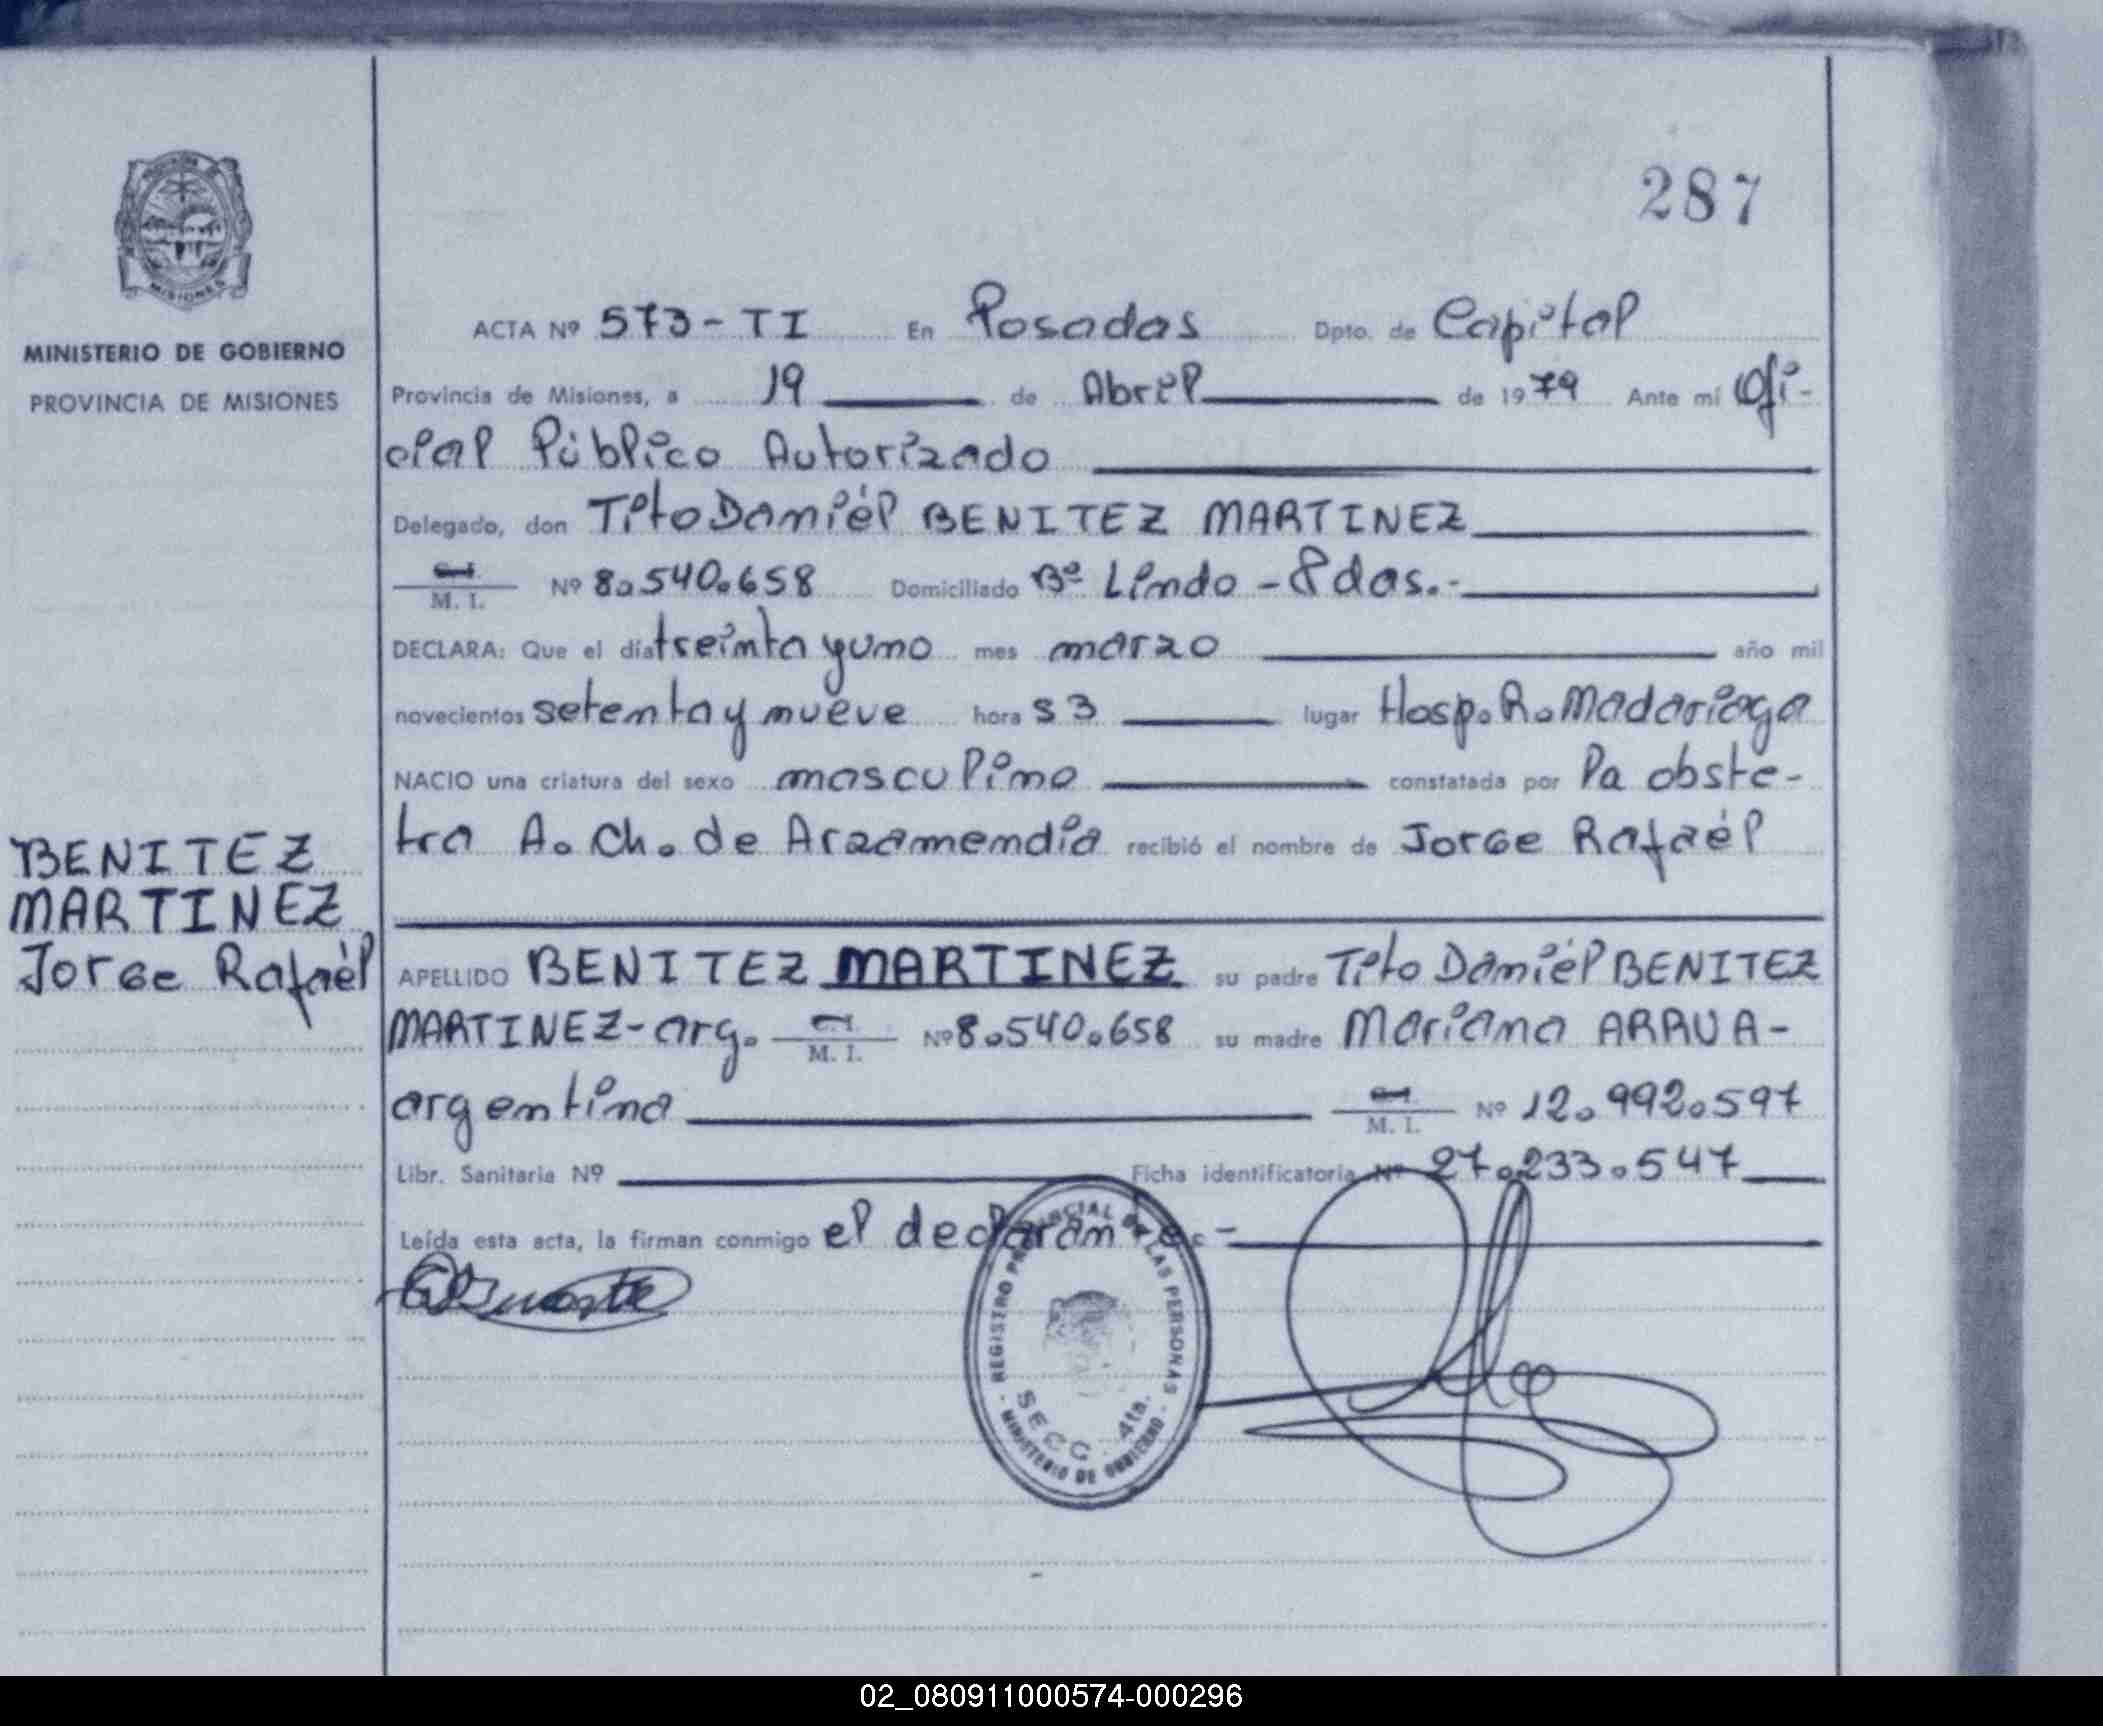 287
MISIONES
MINISTERIO DE GOBIERNO
PROVINCIA DE MISIONES
BENITEZ
MARTINEZ
Jorge Rafaél
ACTA Nº 573-TI En Posadas Dpto. de Capital
Provincia de Misiones, a 19 de Abril de 1979 Ante mí Ofi-
cial Público Autorizado
Delegado, don Tito Daniél BENITEZ MARTINEZ
M. I. Nº 8.540.658 Domiciliado Bº Lindo - Pdas.-
DECLARA: Que el día treinta y uno mes marzo año mil
novecientos setenta y nueve hora s 3 lugar Hosp. R. Madariaga
NACIO una criatura del sexo masculino constatada por la obste-
tra A. Ch. de Arzamendia recibió el nombre de Jorge Rafaél
APELLIDO BENITEZ MARTINEZ su padre Tito Daniél BENITEZ
MARTINEZ-arg. M. I. Nº 8.540.658 su madre Mariana ARRUA-
argentina M. I. Nº 12.992.597
Libr. Sanitaria Nº Ficha identificatoria Nº 27.233.547
Leída esta acta, la firman conmigo el declarante.-
REGISTRO PROVINCIAL DE LAS PERSONAS
SECC. 4ta.
- MINISTERIO DE GOBIERNO -
02_080911000574-000296